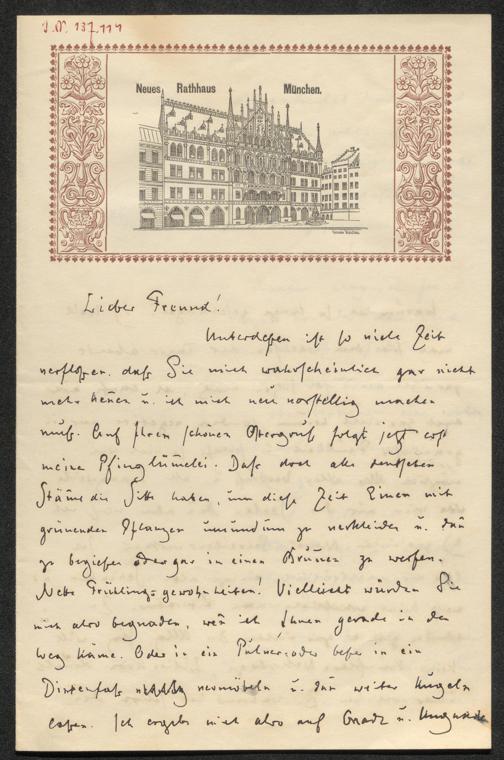 J.N. 137.114
Neues Rathhaus München.
Lieber Freund!
Unterdessen ist so viele Zeit
verflossen, dass Sie mich wahrscheinlich gar nicht
mehr kennen u. ich mich neu vorstellig machen
muss. Auf Ihren schönen Ostergruß folgt jetzt erst
meine Pfingstlümelei. Dass doch alle deutschen
Stämme die Sitte haben, um diese Zeit Einen mit
grünenden Pflanzen umundum zu verkleiden u. dan
zu begießen oder gar in einen Brunnen zu werfen.
Nette Frühlings-gewohnheiten! Vielleicht würden Sie
mich also begnaden, wen ich Ihnen gerade in den
Weg käme. Oder in ein Pulver- oder besser in ein
Dintenfass vermöbeln u. dan weiter kugeln
lassen. Ich ergebe mich also auf Gnade u. Ungnade